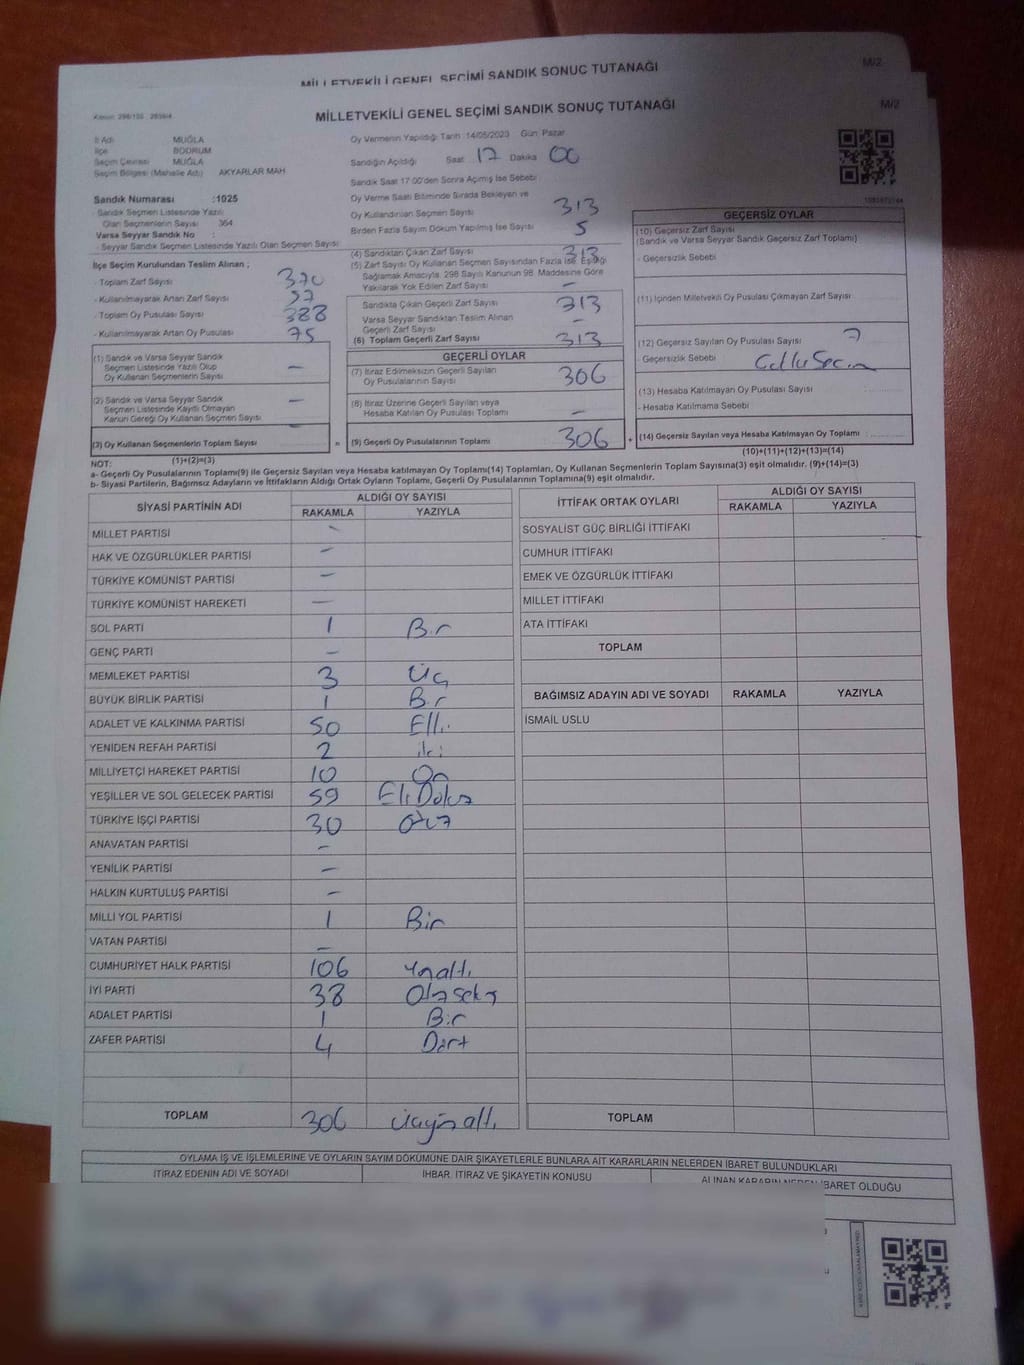 MİLLETVEKİLİ GENEL SEÇİMİ SANDIK SONUÇ TUTANAĞI
M/2
MİLLETVEKİLİ GENEL SEÇİMİ SANDIK SONUÇ TUTANAĞI
M/2
İl Adı MUĞLA
İlçe BODRUM
Seçim Çevresi MUĞLA
Seçim Bölgesi (Mahalle Adı) AKYARLAR MAH
Sandık Numarası :1025
- Sandık Seçmen Listesinde Yazılı
Olan Seçmenlerin Sayısı 364
Varsa Seyyar Sandık No :
- Seyyar Sandık Seçmen Listesinde Yazılı Olan Seçmen Sayısı
İlçe Seçim Kurulundan Teslim Alınan ;
- Toplam Zarf Sayısı 370
- Kullanılmayarak Artan Zarf Sayısı 57
- Toplam Oy Pusulası Sayısı 388
- Kullanılmayarak Artan Oy Pusulası 75
(1) Sandık ve Varsa Seyyar Sandık
Seçmen Listesinde Yazılı Olup
Oy Kullanan Seçmenlerin Sayısı -
(2) Sandık ve Varsa Seyyar Sandık
Seçmen Listesinde Kayıtlı Olmayan
Kanun Gereği Oy Kullanan Seçmen Sayısı -
(3) Oy Kullanan Seçmenlerin Toplam Sayısı
(1)+(2)=(3)
Oy Vermenin Yapıldığı Tarih :14/05/2023 Gün: Pazar
Sandığın Açıldığı Saat 17 Dakika 00
Sandık Saat 17.00'den Sonra Açılmış İse Sebebi
Oy Verme Saati Bitiminde Sırada Bekleyen ve
Oy Kullandırılan Seçmen Sayısı 313
Birden Fazla Sayım Döküm Yapılmış İse Sayısı 5
(4) Sandıktan Çıkan Zarf Sayısı 313
(5) Zarf Sayısı Oy Kullanan Seçmen Sayısından Fazla İse, Eşitliği
Sağlamak Amacıyla, 298 Sayılı Kanunun 98. Maddesine Göre
Yakılarak Yok Edilen Zarf Sayısı -
Sandıkta Çıkan Geçerli Zarf Sayısı 313
Varsa Seyyar Sandıktan Teslim Alınan
Geçerli Zarf Sayısı -
(6) Toplam Geçerli Zarf Sayısı 313
GEÇERLİ OYLAR
(7) İtiraz Edilmeksizin Geçerli Sayılan
Oy Pusulalarının Sayısı 306
(8) İtiraz Üzerine Geçerli Sayılan veya
Hesaba Katılan Oy Pusulası Toplamı -
= (9) Geçerli Oy Pusulalarının Toplamı 306
GEÇERSİZ OYLAR
(10) Geçersiz Zarf Sayısı
(Sandık ve Varsa Seyyar Sandık Geçersiz Zarf Toplamı)
- Geçersizlik Sebebi
(11) İçinden Milletvekili Oy Pusulası Çıkmayan Zarf Sayısı
(12) Geçersiz Sayılan Oy Pusulası Sayısı 7
- Geçersizlik Sebebi
(13) Hesaba Katılmayan Oy Pusulası Sayısı
- Hesaba Katılmama Sebebi
+ (14) Geçersiz Sayılan veya Hesaba Katılmayan Oy Toplamı
(10)+(11)+(12)+(13)=(14)
NOT:
a- Geçerli Oy Pusulalarının Toplamı(9) ile Geçersiz Sayılan veya Hesaba katılmayan Oy Toplamı(14) Toplamları, Oy Kullanan Seçmenlerin Toplam Sayısına(3) eşit olmalıdır. (9)+(14)=(3)
b- Siyasi Partilerin, Bağımsız Adayların ve İttifakların Aldığı Ortak Oyların Toplamı, Geçerli Oy Pusulalarının Toplamına(9) eşit olmalıdır.
SİYASİ PARTİNİN ADI
ALDIĞI OY SAYISI
RAKAMLA YAZIYLA
MİLLET PARTİSİ -
HAK VE ÖZGÜRLÜKLER PARTİSİ -
TÜRKİYE KOMÜNİST PARTİSİ -
TÜRKİYE KOMÜNİST HAREKETİ -
SOL PARTİ 1 Bir
GENÇ PARTİ -
MEMLEKET PARTİSİ 3 Üç
BÜYÜK BİRLİK PARTİSİ 1 Bir
ADALET VE KALKINMA PARTİSİ 50 Elli
YENİDEN REFAH PARTİSİ 2 iki
MİLLİYETÇİ HAREKET PARTİSİ 10 On
YEŞİLLER VE SOL GELECEK PARTİSİ 59 Eli Dokuz
TÜRKİYE İŞÇİ PARTİSİ 30 Otuz
ANAVATAN PARTİSİ -
YENİLİK PARTİSİ -
HALKIN KURTULUŞ PARTİSİ -
MİLLİ YOL PARTİSİ 1 Bir
VATAN PARTİSİ -
CUMHURİYET HALK PARTİSİ 106 Yüzaltı
İYİ PARTİ 38 Otuzsekiz
ADALET PARTİSİ 1 Bir
ZAFER PARTİSİ 4 Dört
TOPLAM 306 Üçyüzaltı
İTTİFAK ORTAK OYLARI
ALDIĞI OY SAYISI
RAKAMLA YAZIYLA
SOSYALİST GÜÇ BİRLİĞİ İTTİFAKI
CUMHUR İTTİFAKI
EMEK VE ÖZGÜRLÜK İTTİFAKI
MİLLET İTTİFAKI
ATA İTTİFAKI
TOPLAM
BAĞIMSIZ ADAYIN ADI VE SOYADI RAKAMLA YAZIYLA
İSMAİL USLU
TOPLAM
OYLAMA İŞ VE İŞLEMLERİNE VE OYLARIN SAYIM DÖKÜMÜNE DAİR ŞİKAYETLERLE BUNLARA AİT KARARLARIN NELERDEN İBARET BULUNDUKLARI
İTİRAZ EDENİN ADI VE SOYADI
İHBAR, İTİRAZ VE ŞİKAYETİN KONUSU
ALINAN KARARIN NEDEN İBARET OLDUĞU